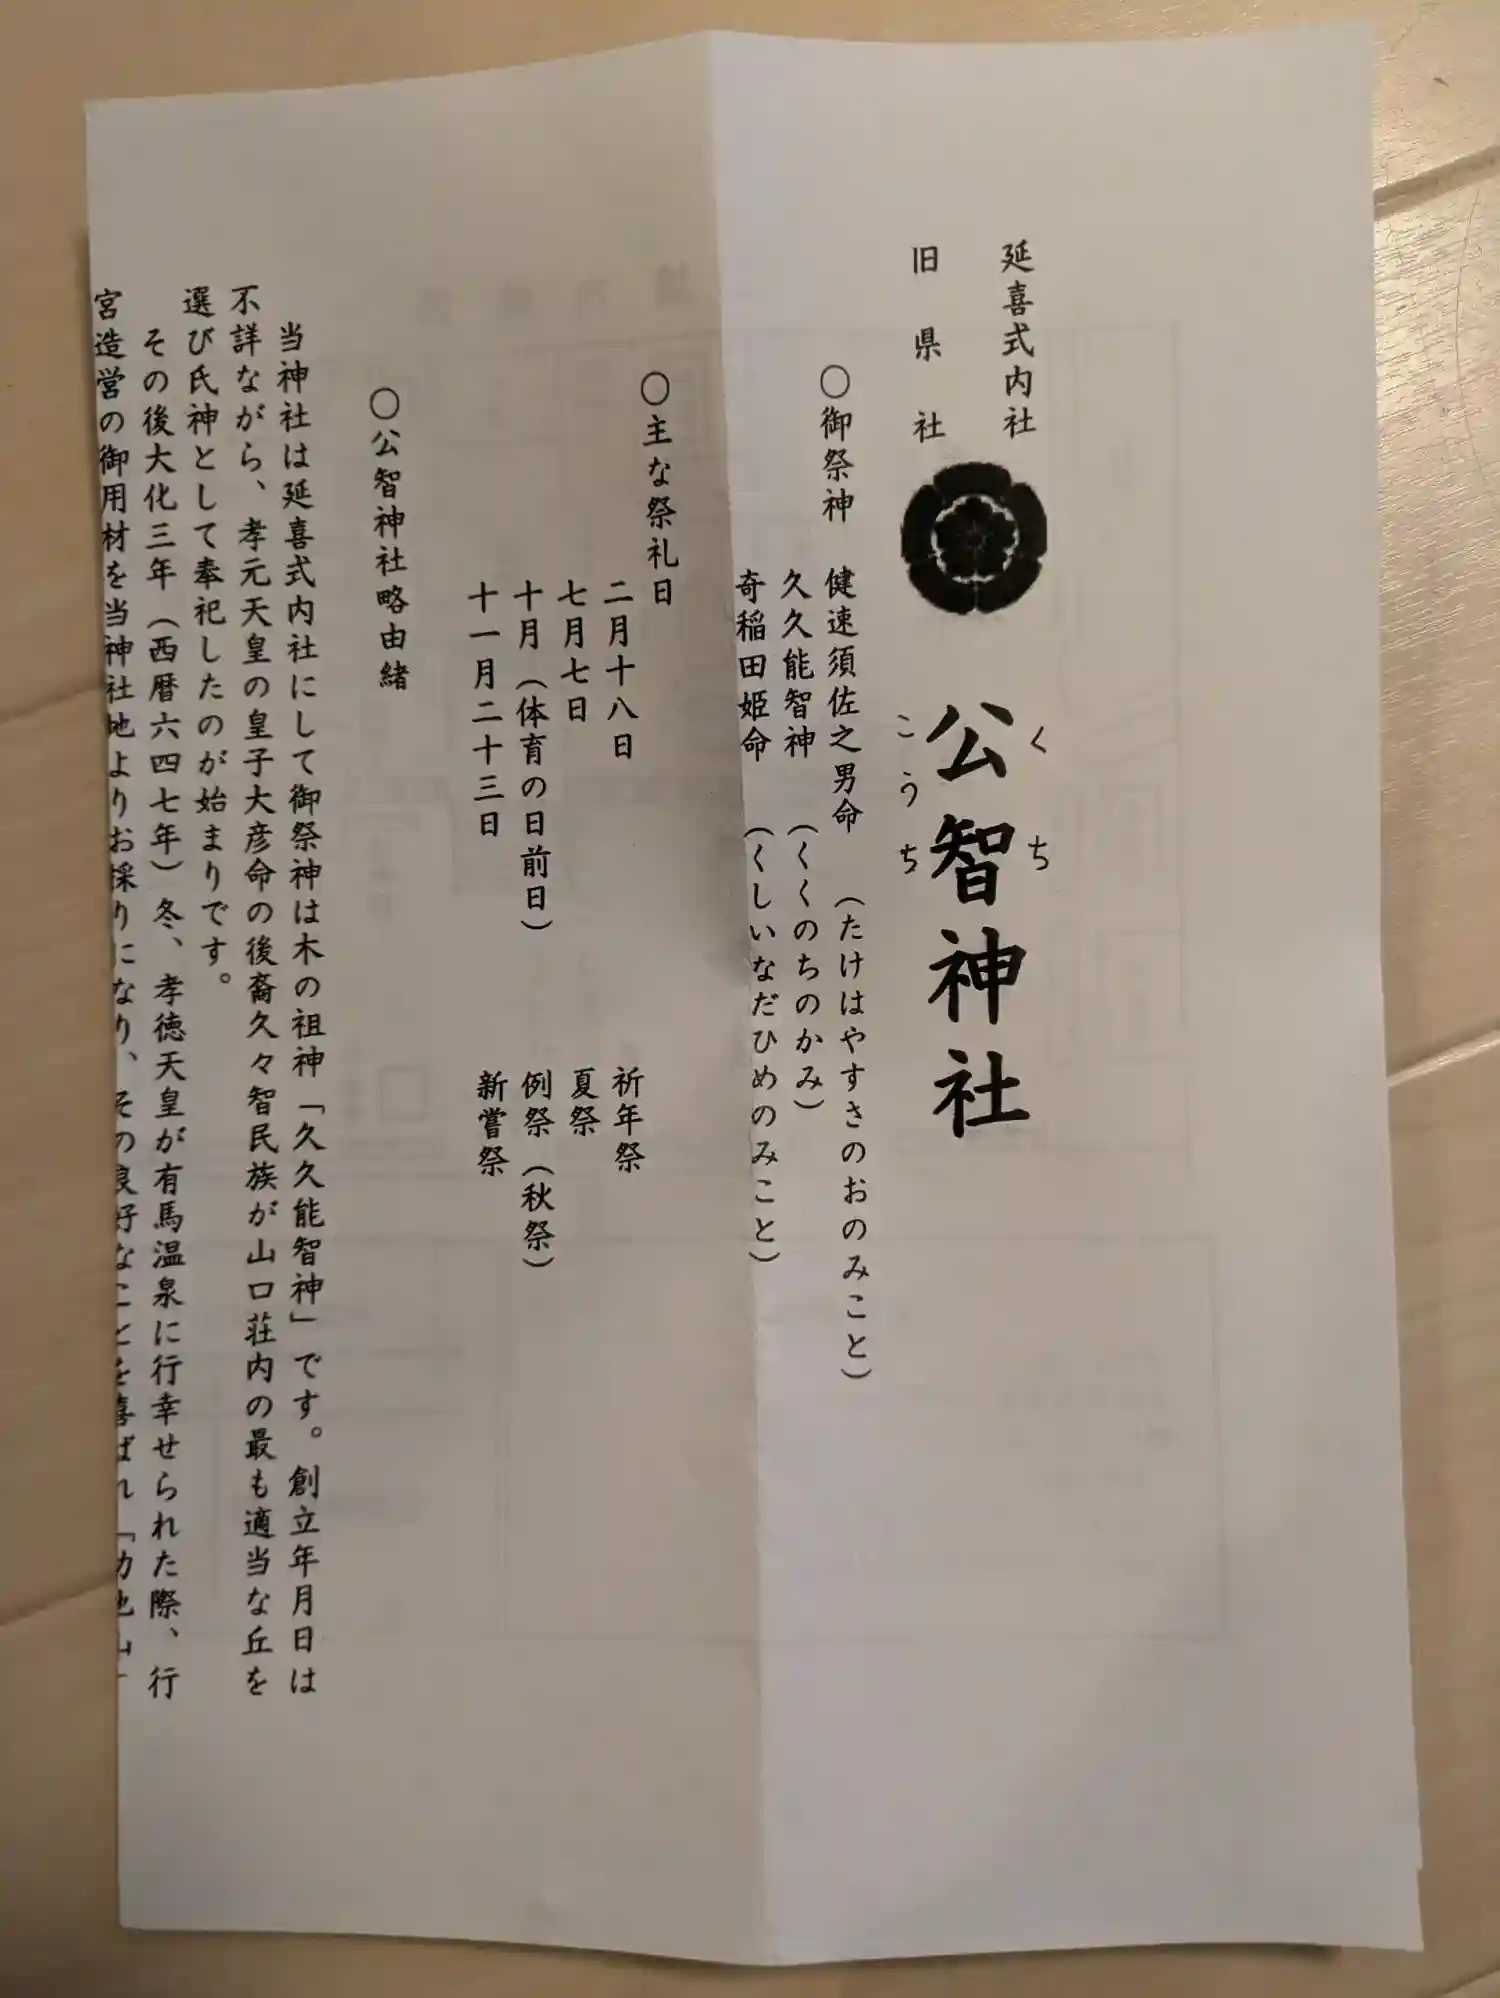 延喜式内社
旧県社
公智神社
くち
こうち
○御祭神 健速須佐之男命 (たけはやすさのおのみこと)
久久能智神 (くくのちのかみ)
奇稲田姫命 (くしいなだひめのみこと)
○主な祭礼日
二月十八日 祈年祭
七月七日 夏祭
十月(体育の日前日) 例祭(秋祭)
十一月二十三日 新嘗祭
○公智神社略由緒
当神社は延喜式内社にして御祭神は木の祖神「久久能智神」です。創立年月日は
不詳ながら、孝元天皇の皇子大彦命の後裔久々智民族が山口荘内の最も適当な丘を
選び氏神として奉祀したのが始まりです。
その後大化三年(西暦六四七年)冬、孝徳天皇が有馬温泉に行幸せられた際、行
宮造営の御用材を当神社地よりお採りになり、その良好なことを喜ばれ「功地山」